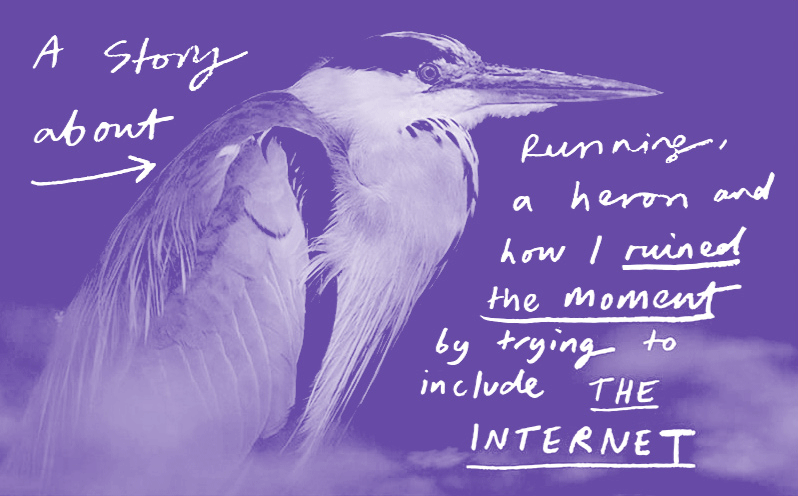 A Story
about
Running,
a heron and
how I ruined
the moment
by trying to
include THE
INTERNET